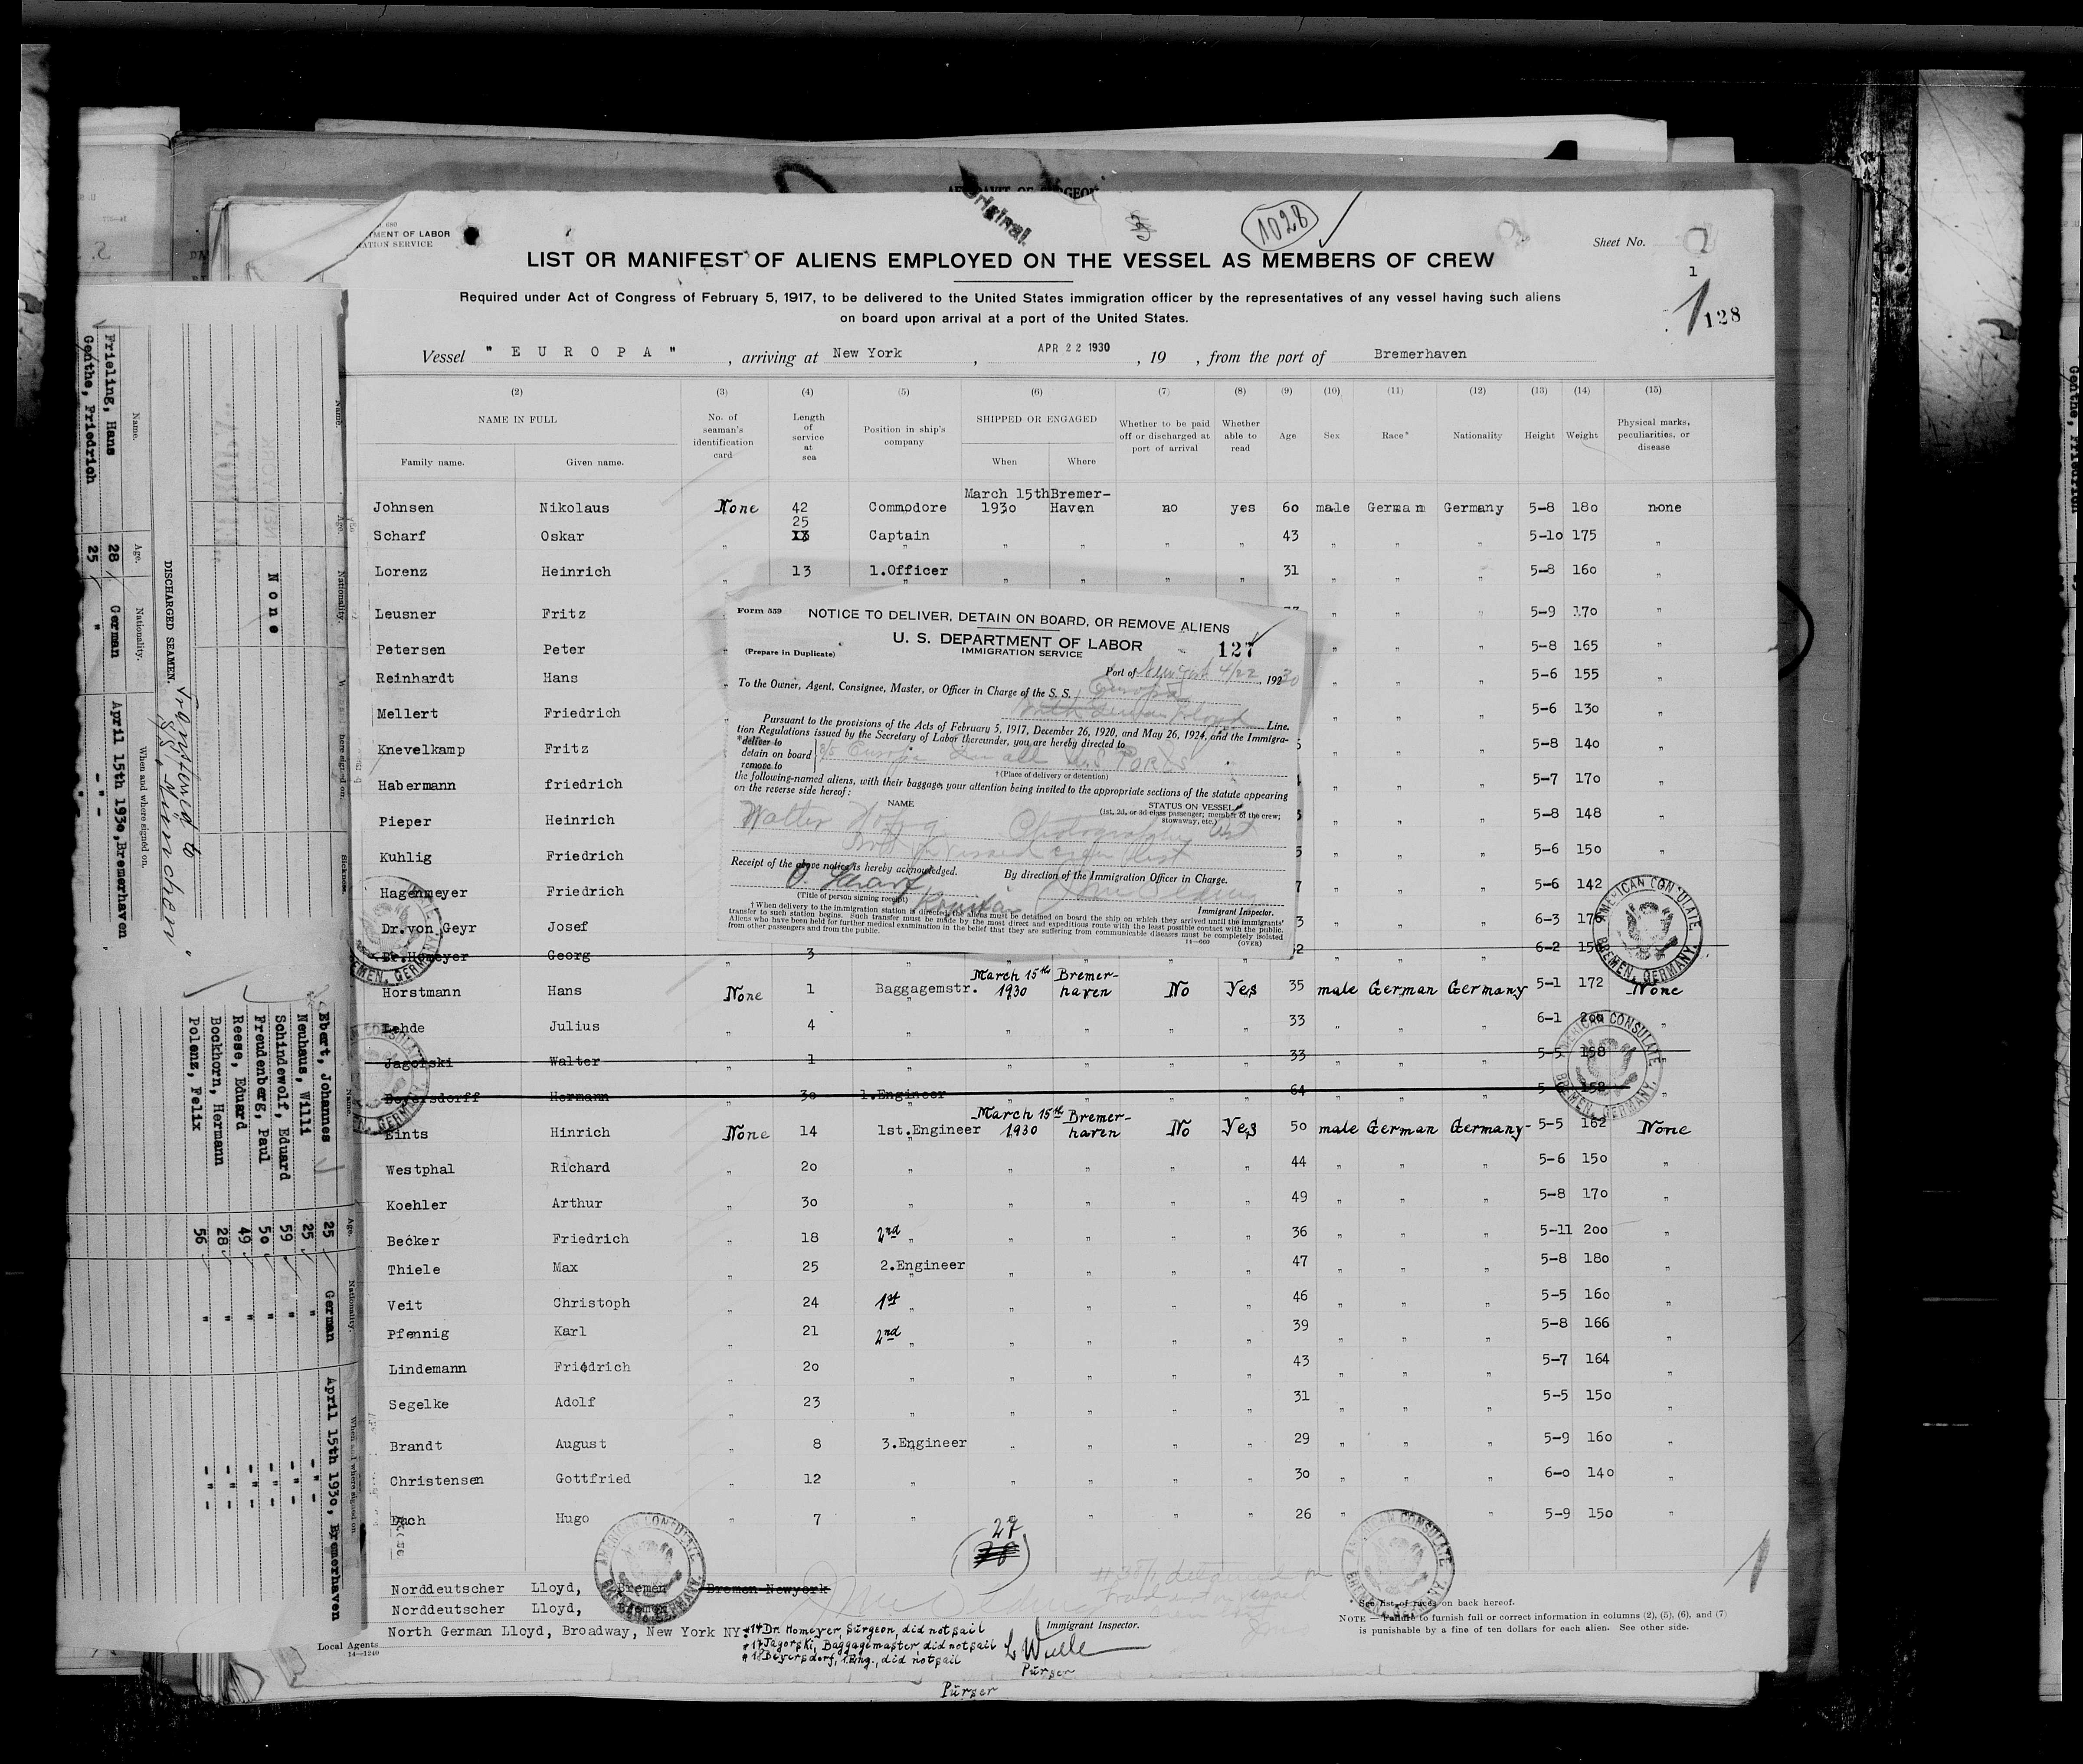 AFFIDAVIT OF SURGEON
Original
3
1028
680
TMENT OF LABOR
ATION SERVICE
Sheet No.
1
128
LIST OR MANIFEST OF ALIENS EMPLOYED ON THE VESSEL AS MEMBERS OF CREW
Required under Act of Congress of February 5, 1917, to be delivered to the United States immigration officer by the representatives of any vessel having such aliens
on board upon arrival at a port of the United States.
Vessel "EUROPA", arriving at New York, APR 22 1930, 19 , from the port of Bremerhaven
(2) (3) (4) (5) (6) (7) (8) (9) (10) (11) (12) (13) (14) (15)
NAME IN FULL No. of seaman's identification card Length of service at sea Position in ship's company SHIPPED OR ENGAGED Whether to be paid off or discharged at port of arrival Whether able to read Age Sex Race* Nationality Height Weight Physical marks, peculiarities, or disease
Family name. Given name. When Where
March 15th Bremer-
Johnsen Nikolaus None 42 Commodore 1930 Haven no yes 60 male German Germany 5-8 180 none
25
Scharf Oskar " Captain " " " " 43 " " " 5-10 175 "
Lorenz Heinrich " 13 1.Officer " " " " 31 " " " 5-8 160 "
Leusner Fritz " " " 5-9 170 "
Petersen Peter " " " 5-8 165 "
Reinhardt Hans " " " 5-6 155 "
Mellert Friedrich " " " 5-6 130 "
Knevelkamp Fritz " " " 5-8 140 "
Habermann friedrich " " " 5-7 170 "
Pieper Heinrich " " " 5-8 148 "
Kuhlig Friedrich " " " 5-6 150 "
Hagenmeyer Friedrich " " " 5-6 142
Dr.von Geyr Josef " " " 6-3 170
Dr.Homeyer Georg " 3 " " " " " " " " 6-2
March 15th Bremer-
Horstmann Hans None 1 Baggagemstr. 1930 haven No Yes 35 male German Germany 5-1 172 None
Lehde Julius " 4 " " " " " 33 " " " 6-1 200 "
Jagorski Walter " 1 " " " " " 33 " " " 5-5 158 "
Beyersdorff Hermann " 30 1.Engineer " " " " 64 " " " 158 "
March 15th Bremer-
Eints Hinrich None 14 1st.Engineer 1930 haven No Yes 50 male German Germany- 5-5 162 None
Westphal Richard " 20 " " " " " 44 " " " 5-6 150 "
Koehler Arthur " 30 " " " " " 49 " " " 5-8 170 "
Becker Friedrich " 18 2nd " " " " " 36 " " " 5-11 200 "
Thiele Max " 25 2.Engineer " " " " 47 " " " 5-8 180 "
Veit Christoph " 24 1st " " " " " 46 " " " 5-5 160 "
Pfennig Karl " 21 2nd " " " " " 39 " " " 5-8 166 "
Lindemann Friedrich " 20 " " " " " 43 " " " 5-7 164 "
Segelke Adolf " 23 " " " " " 31 " " " 5-5 150 "
Brandt August " 8 3.Engineer " " " " 29 " " " 5-9 160 "
Christensen Gottfried " 12 " " " " " 30 " " " 6-0 140 "
Dach Hugo " 7 " " " " 26 " " " 5-9 150 "
27
Norddeutscher Lloyd, Bremen Bremen-Newyork
Norddeutscher Lloyd, Bremen
North German Lloyd, Broadway, New York NY.
Local Agents
14—1240
#14 Dr. Homeyer, Surgeon, did not sail
#17 Jagorski, Baggagemaster did not sail
#18 Beyersdorf, 1.Eng., did not sail
Immigrant Inspector.
Purser
Purser
* See list of races on back hereof.
NOTE — Failure to furnish full or correct information in columns (2), (5), (6), and (7)
is punishable by a fine of ten dollars for each alien. See other side.
AMERICAN CONSULATE
BREMEN, GERMANY.
AMERICAN CONSULATE
BREMEN, GERMANY.
AMERICAN CONSULATE
BREMEN, GERMANY.
AMERICAN CONSULATE
BREMEN, GERMANY.
Form 559
NOTICE TO DELIVER, DETAIN ON BOARD, OR REMOVE ALIENS
U. S. DEPARTMENT OF LABOR
IMMIGRATION SERVICE
127
(Prepare in Duplicate)
Port of New York 4/22, 1930
To the Owner, Agent, Consignee, Master, or Officer in Charge of the S. S. Europa
North German Lloyd Line.
Pursuant to the provisions of the Acts of February 5, 1917, December 26, 1920, and May 26, 1924, and the Immigra-
tion Regulations issued by the Secretary of Labor thereunder, you are hereby directed to
*deliver to
detain on board S/S Europa in all U.S. PORTS
remove to
†(Place of delivery or detention)
the following-named aliens, with their baggage, your attention being invited to the appropriate sections of the statute appearing
on the reverse side hereof:
NAME STATUS ON VESSEL
(1st, 2d, or 3d class passenger; member of the crew;
stowaway, etc.)
Walter Photographer
Not on vissed crew list
Receipt of the above notice is hereby acknowledged. By direction of the Immigration Officer in Charge.
O. Scharf
(Title of person signing receipt)
Immigrant Inspector.
† When delivery to the immigration station is directed, the aliens must be detained on board the ship on which they arrived until the immigrants'
transfer to such station begins. Such transfer must be made by the most direct and expeditious route with the least possible contact with the public.
Aliens who have been held for further medical examination in the belief that they are suffering from communicable diseases must be completely isolated
from other passengers and from the public.
14—669 (OVER)
None
DISCHARGED SEAMEN.
transferred to
SS. München
Name. Age. Nationality. When and where signed on.
Frieling, Hans 28 German April 15th 1930, Bremerhaven
Genthe, Friedrich 25 " -"-
Name. Age. Nationality. When and where signed on.
Ebert, Johannes 25 German April 15th 1930, Bremerhaven
Neuhaus, Willi 25 " -"-
Schindewolf, Eduard 59 " -"-
Freudenberg, Paul 50 " -"-
Reese, Eduard 49 " -"-
Bockhorn, Hermann 28 " -"-
Polenz, Felix 56 " -"-
Genthe, Friedrich